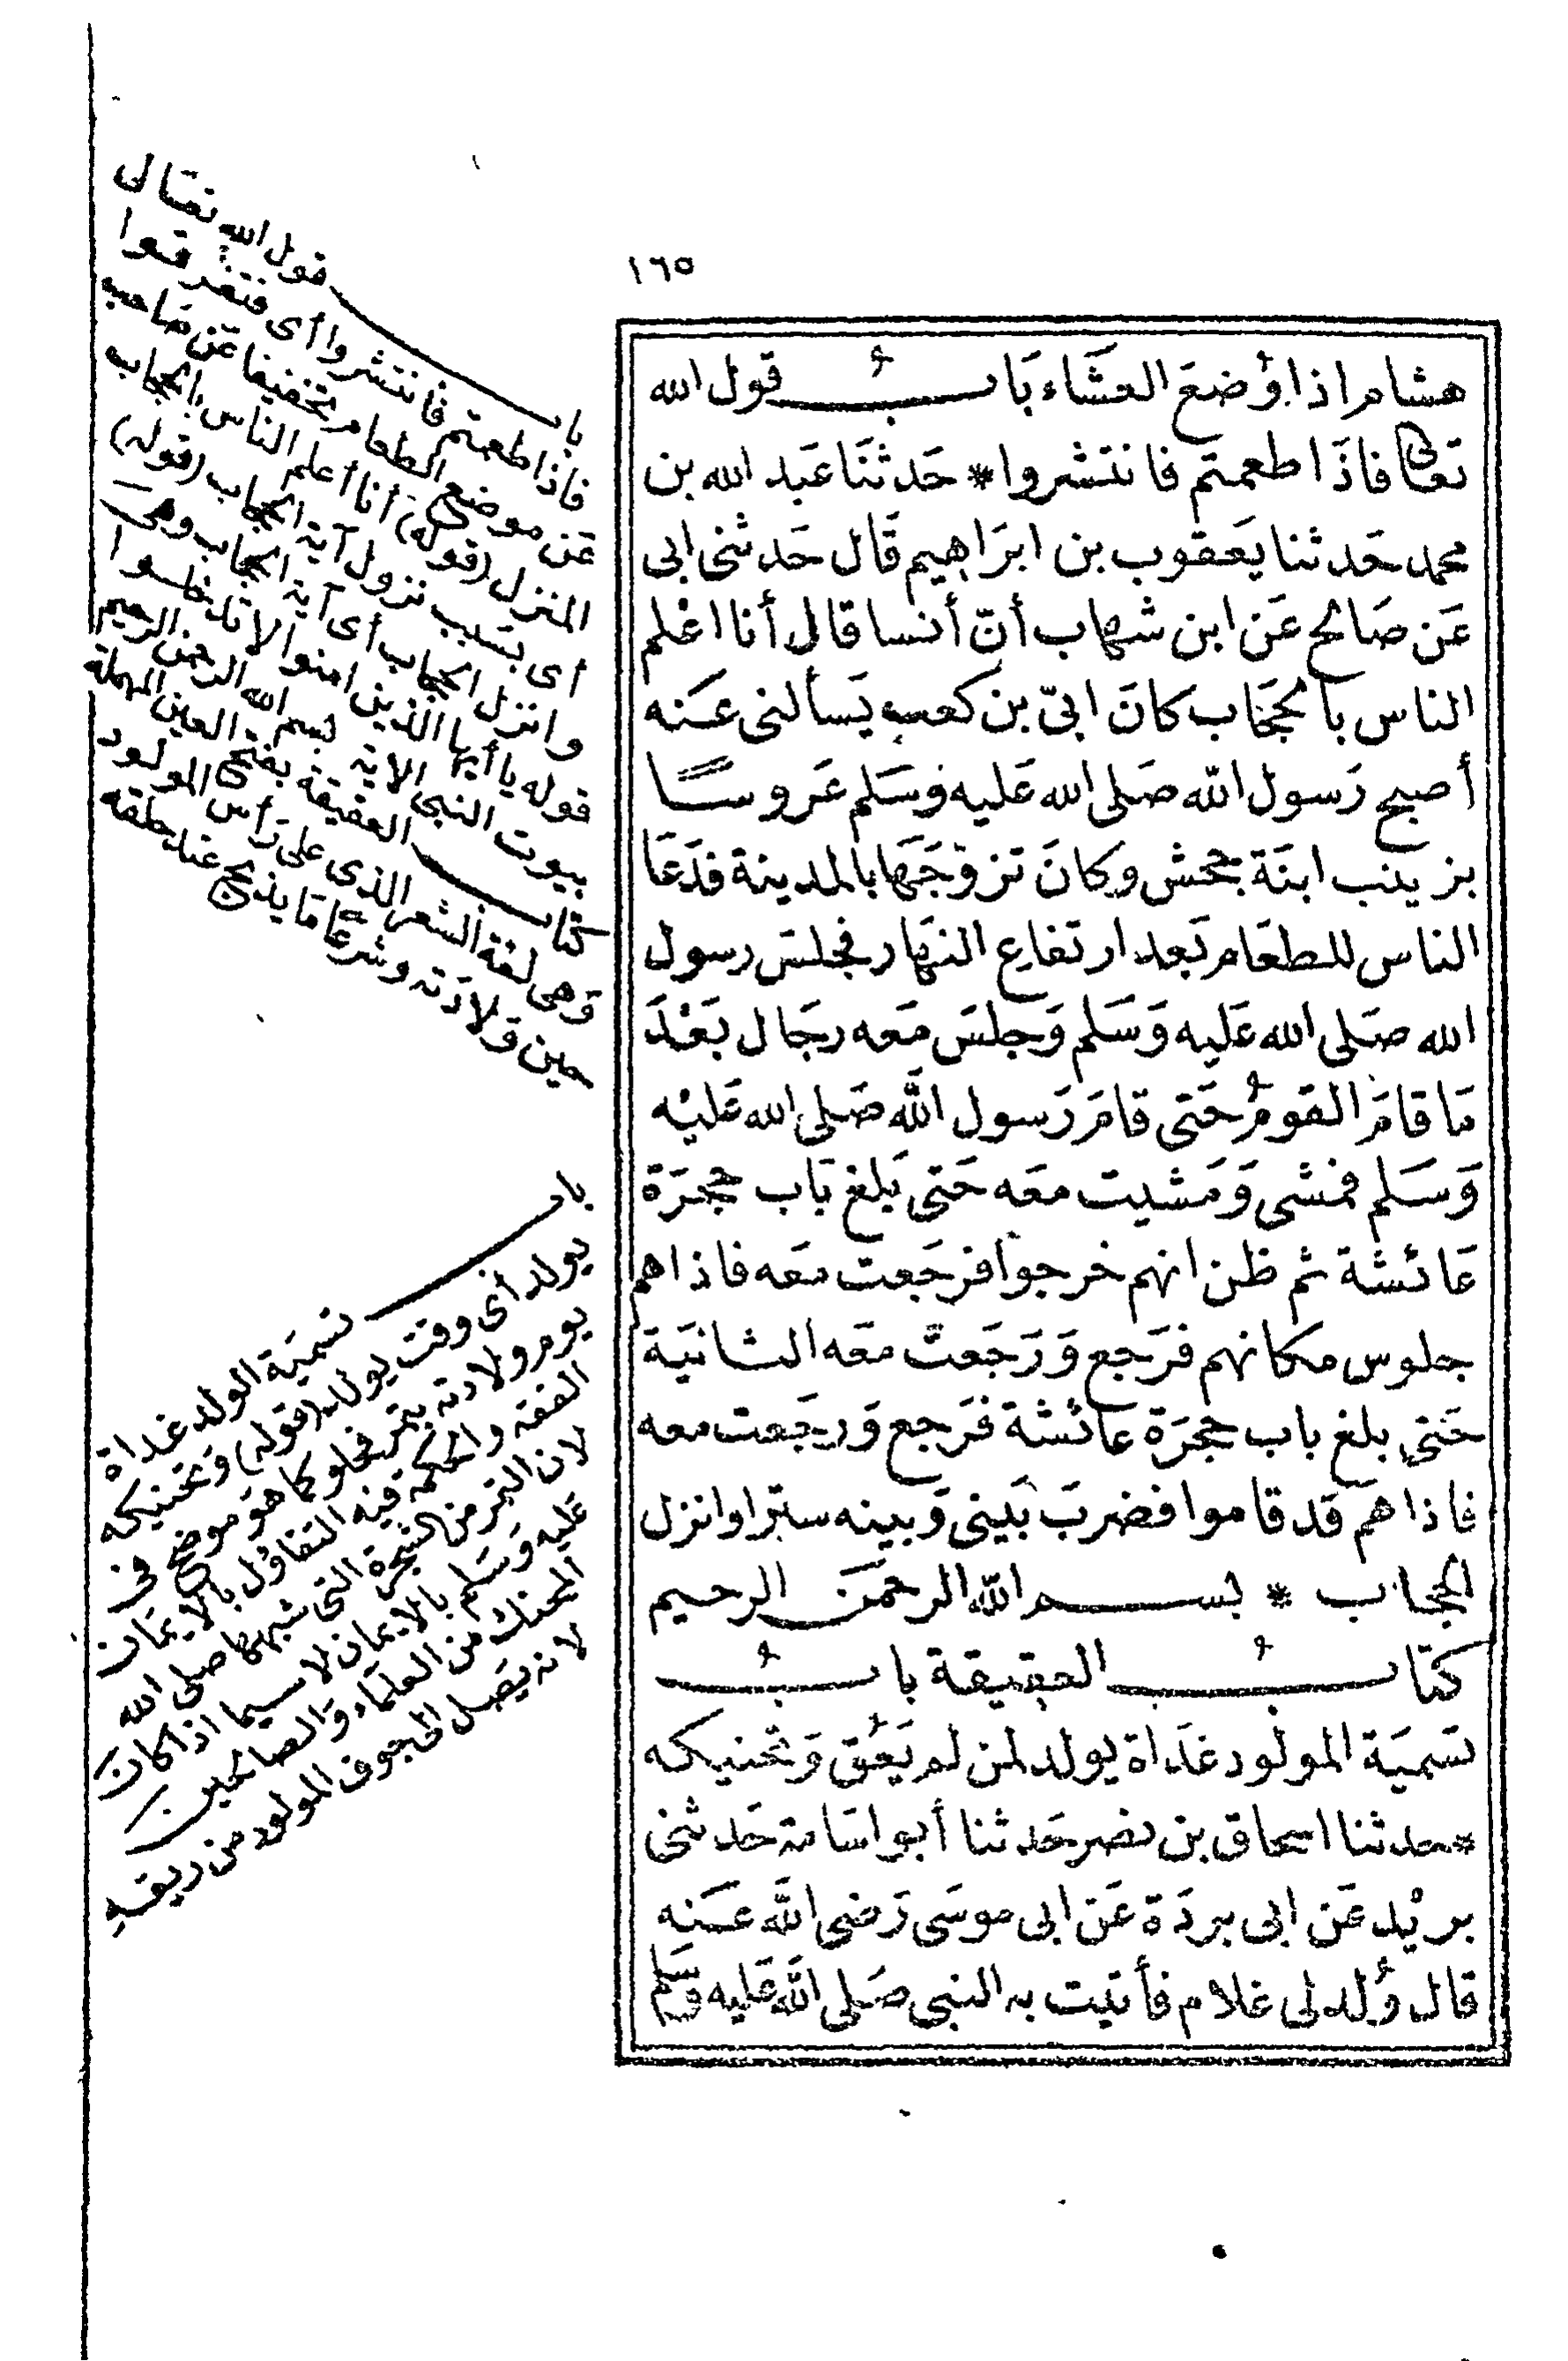 ١٦٥
هشام اذا وُضعَ العَشَاء بَابُ قول الله
تعَالى فاذَا طعمتم فانتشروا * حَدثنَا عَبد الله بن
محمد حَدثنا يَعقوب بن ابرَاهِيم قَال حَدثنى ابى
عَن صَالح عَن ابن شهاب أنّ أنسا قال أنا اعْلم
الناس بالحجَاب كانَ ابىّ بن كعب يَسألنى عَنه
أصبح رَسول الله صَلى الله عَليه وَسَلم عَروسًا
بزينب ابنَة جحش وكانَ تزوّجَهَا بالمدينة فدَعَا
الناس للطعَام بَعد ارتفاع النهَار فجلسَ رسول
الله صَلى الله عَليه وَسَلم وَجلسَ مَعه رجَال بَعْدَ
مَا قامَ القومُ حَتى قامَ رَسول اللَّه صَلى الله عَليْه
وَسَلم فمشى وَمَشيت معَه حَتى بَلغ بَاب حجرَة
عَائشَة ثم ظن انهم خرجوا فرجَعت مَعه فاذا هم
جلوس مكانهم فرَجع وَرَجَعتُ مَعَه الثانيَة
حَتى بلغ باب حجرَة عائشة فَرَجع وَرجَعت معه
فاذا همَ قد قاموا فضربَ بَينى وَبينه سترا وانزل
الحجاب * بسم الله الرحمَن الرحيم
كتابُ العقيقة بابُ
تسميَة المولود غدَاة يولد لمن لم يَعُق وَتحنيكه
* حدثنا اسحاق بن نصر حَدثنا أبو اسَامة حَدثنى
بريْد عَن ابى بردَة عَن ابى موسَى رَضى اللَّه عَنه
قال وُلد لى غلام فأتيت به النبى صَلى اللَّه عَليه وَسَلم
باب قول الله تعَالى
فاذا طعمتم فانتشروا أى فتفرقوا
عَن موضع الطعام تخفيفا عَن صَاحب
المنزل (قوله) أنا أعلم الناس بالحجاب
أى بسَبب نزول آية الحجاب (قوله)
وانزل الحجاب أى آية الحجاب وهى
قوله يا أيها الذين امنوا لا تدخلوا
بيوت النبى الاية بسم الله الرحمن الرحيم
كتاب العقيقة بفتح العين المهملة
وَهى لغة الشعر الذى على رَأس المولود
حين وَلادَته وشرعًا مَا يذبح عند حلقه
باب تسميَة الولد غداة
يولد أى وقت يولد (قوله) وَتحنيكه
يوم ولادته بتمر فحلو كما هوَ موضح فى
الفقه والحكمة فيه التفاؤل بالايمَان
لان التمر من الشجرة التى شبهها صلى الله
عَليه وَسَلم بالايمان لا سيما اذا كانَ
المحنك من العلمَاء وَالصالحين
لانه يَصل الى جوف المولود من ريقهِ